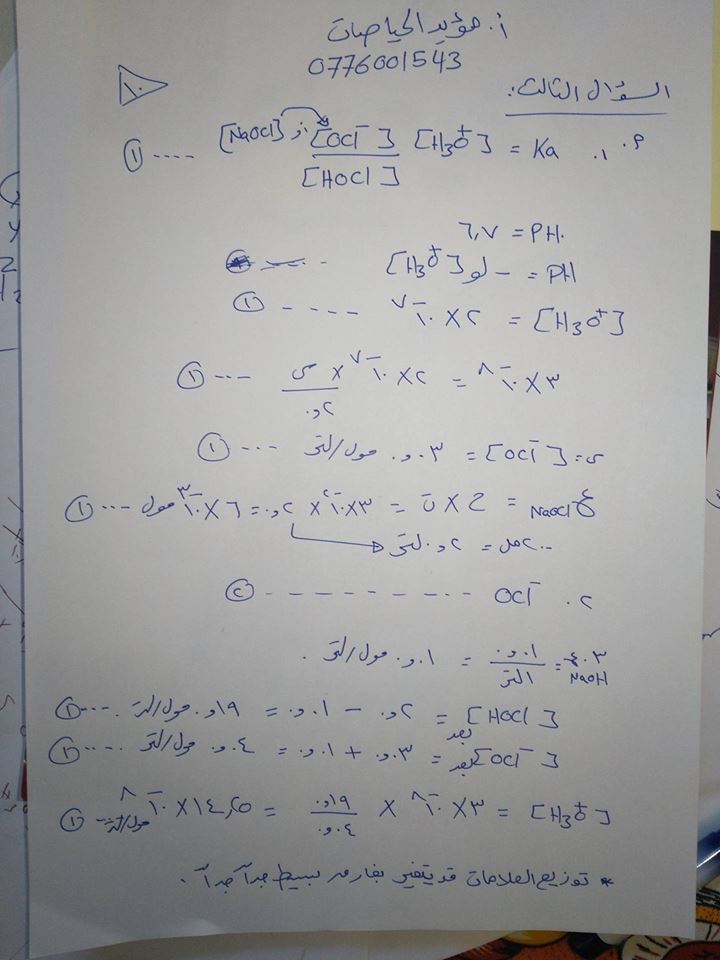 أ. مؤيد الحياصات
0776001543
١٠
السؤال الثالث:
٩. ١. Ka = [H3O+] [OCl-] / [HOCl] [NaOCl] ---- ①
PH = ٦,٧
PH = - لو [H3O+]
[H3O+] = ٢ × ١٠-٧ ---- ①
٣ × ١٠-٨ = ٢ × ١٠-٧ × س / ٠,٢ --- ①
س = [OCl-] = ٠,٠٣ مول/لتر --- ①
NaOCl ع = ح × ت = ٣ × ١٠-٢ × ٠,٢ = ٦ × ١٠-٣ مول --- ①
٢٠٠ مل = ٠,٢ لتر
٢. OCl- --------- ②
NaOH = ٠,٠١ / ١ لتر = ٠,٠١ مول/لتر.
[HOCl] بعد = ٠,٢ - ٠,٠١ = ٠,١٩ مول/لتر. ---- ①
[OCl-] بعد = ٠,٠٣ + ٠,٠١ = ٠,٠٤ مول/لتر ---- ①
[H3O+] = ٣ × ١٠-٨ × ٠,١٩ / ٠,٠٤ = ١٤,٢٥ × ١٠-٨ مول/لتر --- ①
* توزيع العلامات قد يتغير بفارق بسيط جداً جداً.